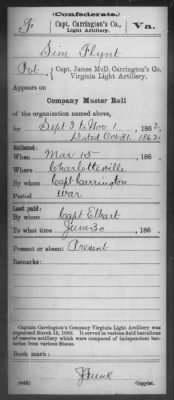 (Confederate.)
F Capt. Carrington's Co., Va.
Light Artillery.
Sim Flynt
Pvt., Capt. James McD. Carrington's Co.
Virginia Light Artillery.
Appears on
Company Muster Roll
of the organization named above,
for Sept 3 to Nov 1, 1862,
Dated Oct 31, 1862
Enlisted:
When Mar 15, 186 .
Where Charlottesville
By whom Capt Carrington
Period War
Last paid:
By whom Capt Elhart
To what time June 30, 186 .
Present or absent Present
Remarks:
Captain Carrington's Company Virginia Light Artillery was
organized March 15, 1862. It served in various field battalions
of reserve artillery which were composed of independent batteries
from various States.
Book mark:
(642) Copyist.